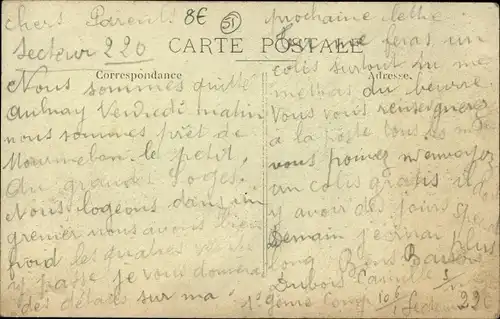 Chers Parents 8€ 51
Secteur 220
CARTE POSTALE
Correspondance
Nous sommes quitté
Aulnay Vendredi matin
nous sommes prêt de
Mourmelon le petit.
Au grandes Loges.
Nous logeons dans un
grenier nous avons bien
froid les quatres
y passe je vous donnerai
des détails sur ma
prochaine lettre
Tu me feras un
colis surtout tu me
mettras du beurre.
Adresse
Vous vous renseignerez
a la poste tous les mois
vous pouvez m'envoyez
un colis gratis il doi
y avoir des jours spe
Demain j'ecrirai plus
long Bons Baisers
Dubois Camille
1° 9eme Comp 106
Secteur 220